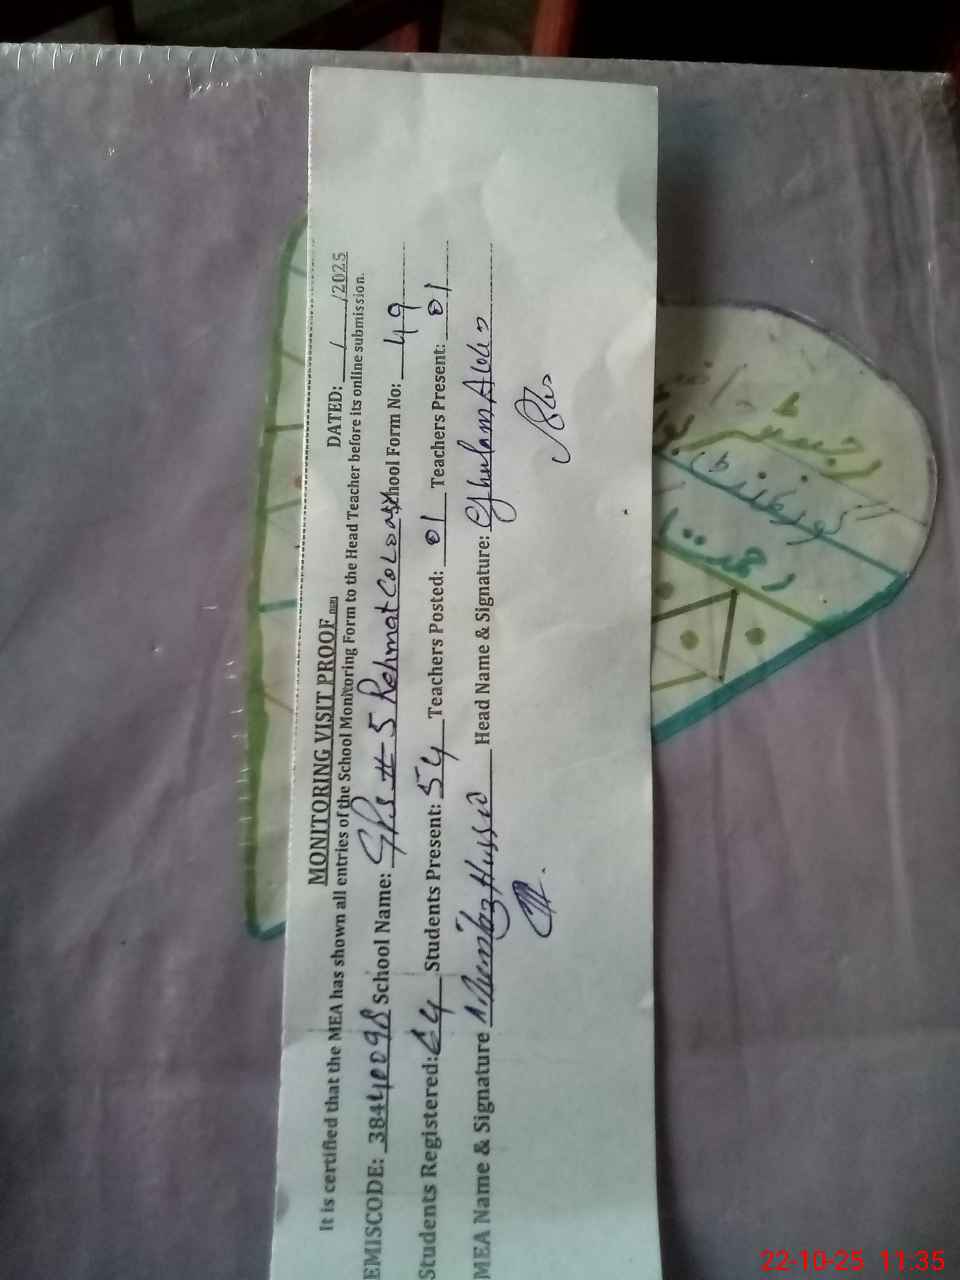 MONITORING VISIT PROOF
DATED: / /2025
It is certified that the MEA has shown all entries of the School Monitoring Form to the Head Teacher before its online submission.
EMISCODE: 38440098 School Name: GPS # 5 Rehmat Colony School Form No: 49
Students Registered: 64 Students Present: 54 Teachers Posted: 01 Teachers Present: 01
MEA Name & Signature Hussain Head Name & Signature: Ghulam Abbas
رجسٹر
گورنمنٹ
رحمت
22-10-25 11:35